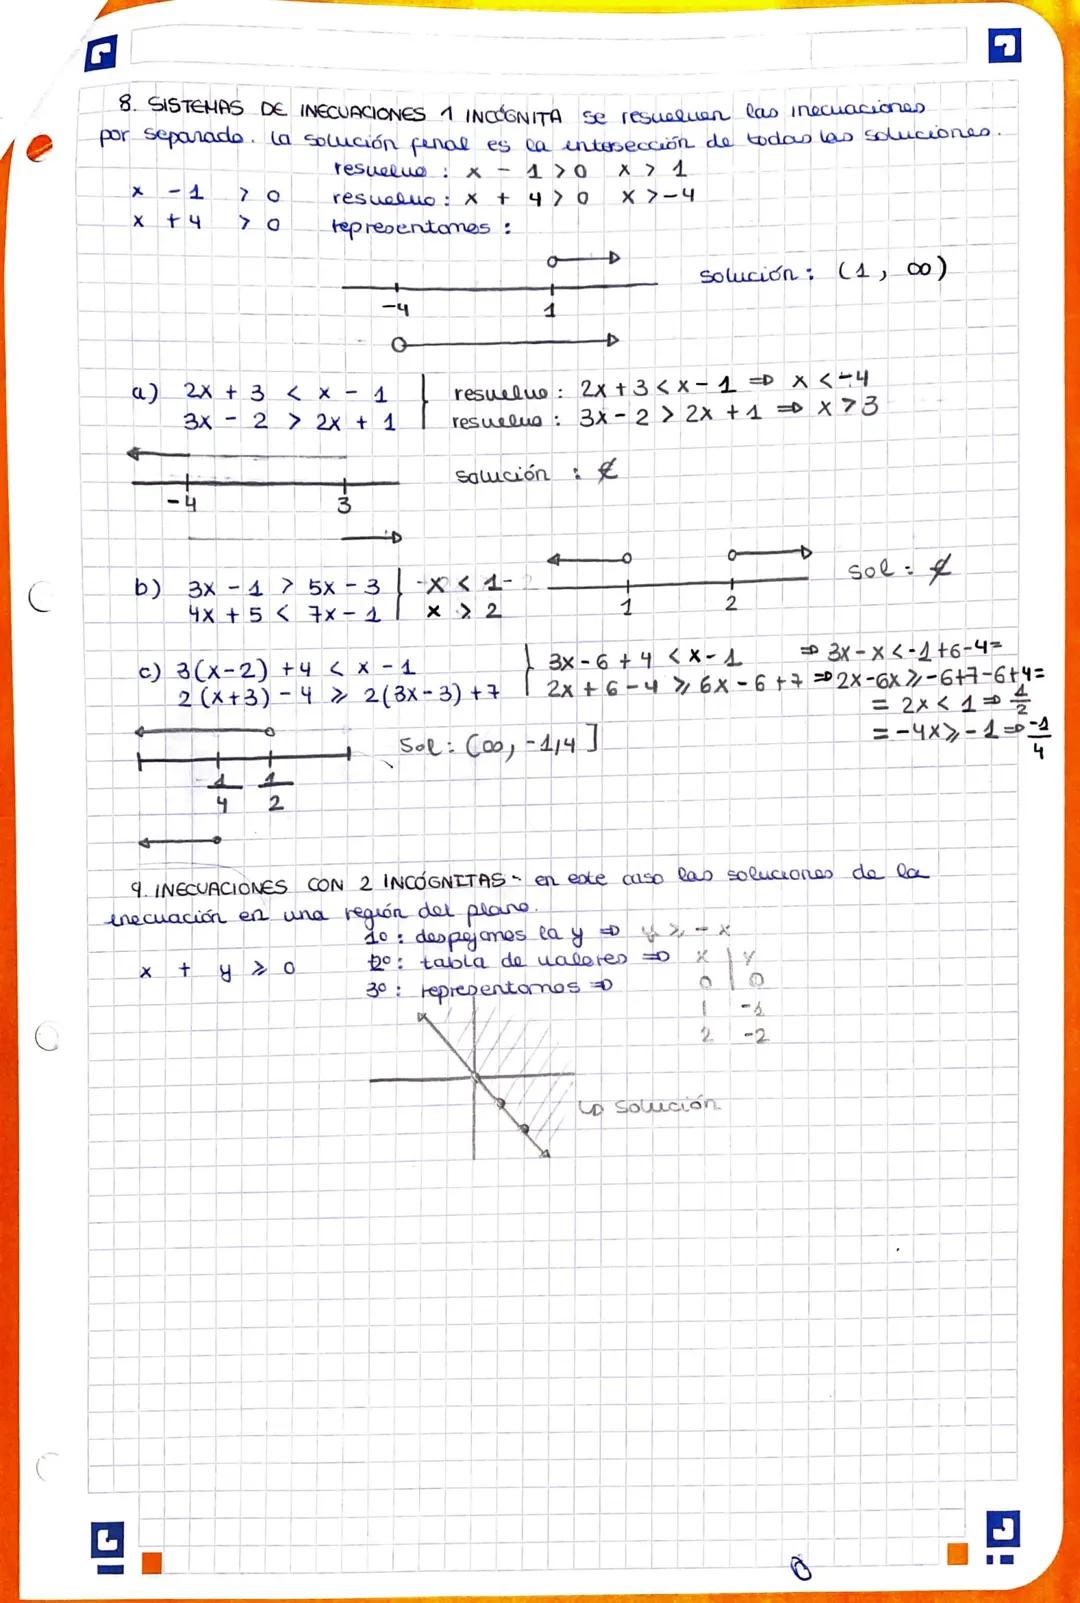 8. SISTEMAS DE INECUACIONES 1 INCÓGNITA se resuelven las inecuaciones
por separado. La solución final es la intersección de todas las soluciones.
resuelvo : x - 1 > 0 x > 1
x - 1 > 0 resuelvo : x + 4 > 0 x > -4
x + 4 > 0 representamos :
solución : (1, ∞)
-4 1
a) 2x + 3 < x - 1 resuelvo : 2x + 3 < x - 1 ⇒ x < -4
3x - 2 > 2x + 1 resuelvo : 3x - 2 > 2x + 1 ⇒ x > 3
solución : ∉
-4 3
b) 3x - 1 > 5x - 3 -x < 1- sol : ∉
4x + 5 < 7x - 1 x > 2
1 2
c) 3(x-2) + 4 < x - 1 3x - 6 + 4 < x - 1 ⇒ 3x - x < -1 + 6 - 4 =
2(x+3) - 4 ≥ 2(3x-3) + 7 2x + 6 - 4 ≥ 6x - 6 + 7 ⇒ 2x - 6x ≥ -6+7-6+4 =
= 2x < 1 ⇒ 1/2
= -4x ≥ -1 ⇒ -1/4
Sol : (∞, -1/4]
-1/4 1/2
9. INECUACIONES CON 2 INCÓGNITAS - en este caso las soluciones de la
inecuación en una región del plano.
1º : despejamos la y ⇒ y ≥ -x
x + y ≥ 0 2º : tabla de valores ⇒ x y
3º : representamos ⇒ 0 0
1 -1
2 -2
↳ solución